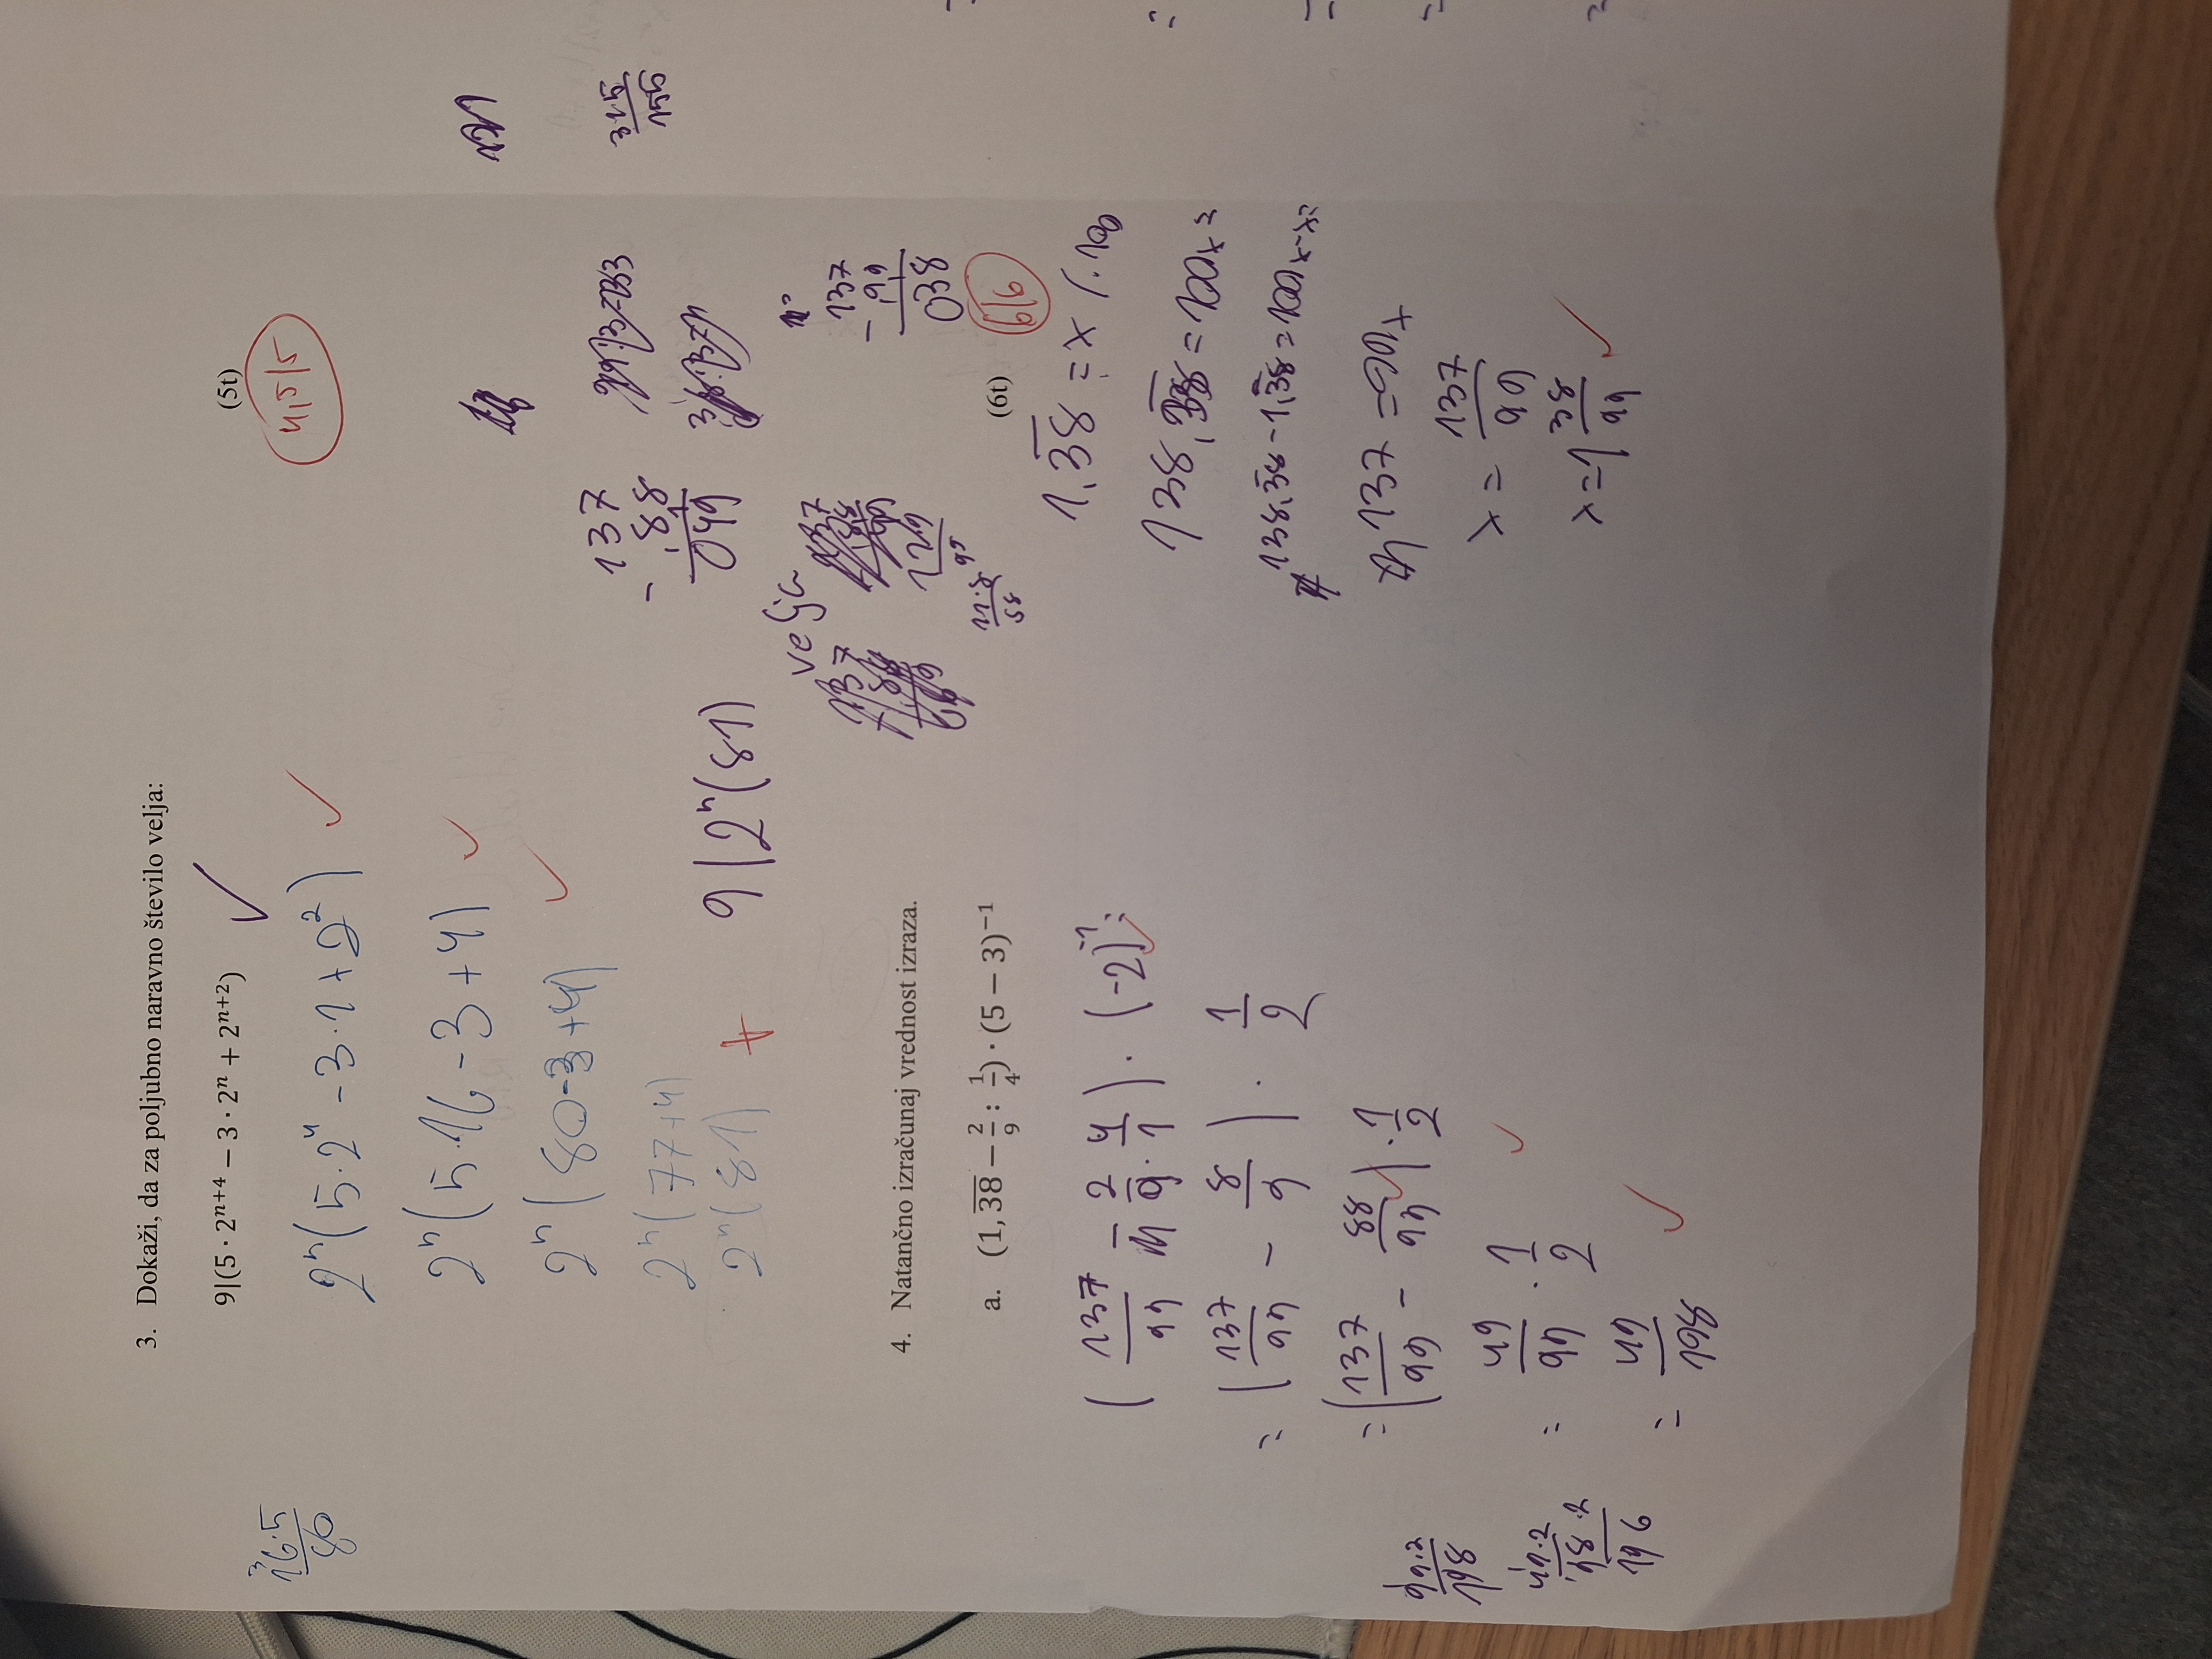 3. Dokaži, da za poljubno naravno število velja:
9|(5 · 2ⁿ⁺⁴ − 3 · 2ⁿ + 2ⁿ⁺²) ✓
(5t)
4,5/5
16·5
80
2ⁿ(5·2⁴ − 3·1 + 2²) ✓
2ⁿ(5·16 − 3 + 4) ✓
2ⁿ(80 − 3 + 4) ✓
2ⁿ(77 + 4)
2ⁿ(81) + 9|2ⁿ(81)
velja
137
− 88
049
31·5
155
137
− 99
038
129
99
11·8
88
4. Natančno izračunaj vrednost izraza.
a. (1,3̅8̅ − 2/9 : 1/4) · (5 − 3)⁻¹
(6t)
6/6
(137/99 − 2/9 · 4/1) · (-2)⁻¹ =
= (137/99 − 8/9) · 1/2
= (137/99 − 88/99) · 1/2
= 49/99 · 1/2 ✓
= 49/198 ✓
99·2
198
49·2
98·2
196
1,3̅8̅ = x /·100
138,3̅8̅ = 100x =
138,3̅8̅ − 1,3̅8̅ = 100x − x =
137 = 99x
x = 137/99
x = 1 38/99 ✓